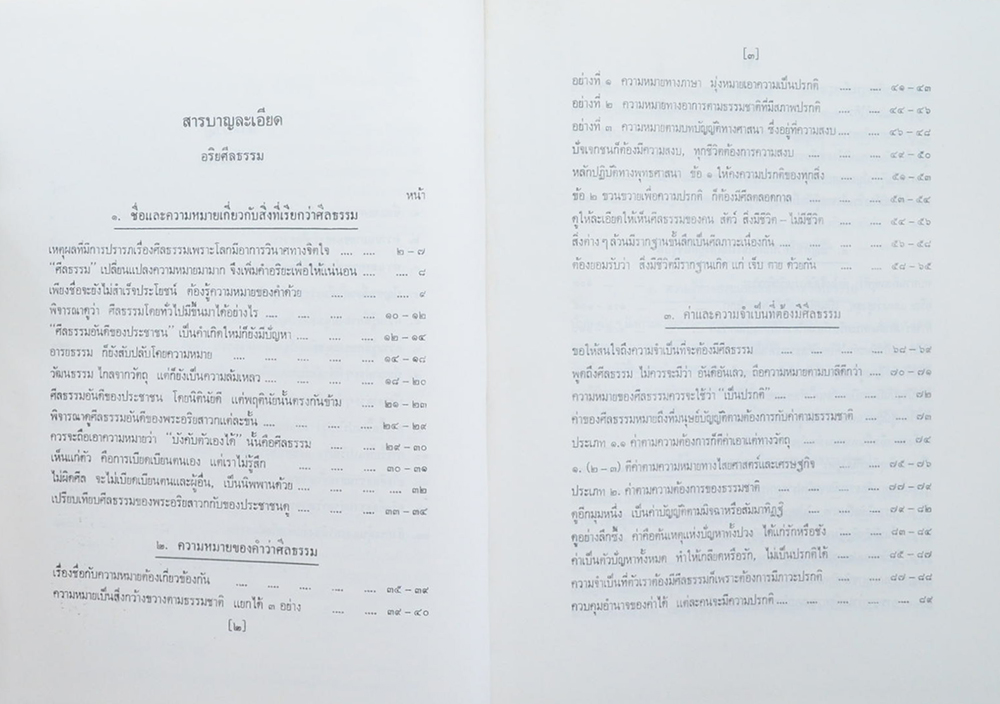 สารบาญละเอียด
อริยศีลธรรม
หน้า
๑. ชื่อและความหมายเกี่ยวกับสิ่งที่เรียกว่าศีลธรรม
เหตุผลที่มีการปรารภเรื่องศีลธรรมเพราะโลกมีอาการวินาศทางจิตใจ .... .... ๒ – ๗
"ศีลธรรม" เปลี่ยนแปลงความหมายมามาก จึงเพิ่มคำอริยะเพื่อให้แน่นอน .... .... ๘
เพียงชื่อจะยังไม่สำเร็จประโยชน์ ต้องรู้ความหมายของคำด้วย .... .... .... ๙
พิจารณาดูว่า ศีลธรรมโดยทั่วไปมีขึ้นมาได้อย่างไร .... .... .... ๑๐ – ๑๒
"ศีลธรรมอันดีของประชาชน" เป็นคำเกิดใหม่ก็ยังมีปัญหา .... .... .... ๑๒ – ๑๔
อารยธรรม ก็ยังสับปลับโดยความหมาย .... .... .... .... ๑๔ – ๑๘
วัฒนธรรม ไกลจากวัตถุ แต่ก็ยังเป็นความล้มเหลว .... .... .... ๑๘ – ๒๐
ศีลธรรมอันดีของประชาชน โดยนิตินัยดี แต่พฤตินัยนั้นตรงกันข้าม .... ๒๑ – ๒๓
พิจารณาดูศีลธรรมอันดีของพระอริยสาวกแต่ละชั้น .... .... .... ๒๔ – ๒๙
ควรจะถือเอาความหมายว่า "บังคับตัวเองได้" นั้นคือศีลธรรม .... .... ๒๙ – ๓๐
เห็นแก่ตัว คือการเบียดเบียนตนเอง แต่เราไม่รู้สึก .... .... .... ๓๐ – ๓๑
ไม่ผิดศีล จะไม่เบียดเบียนตนและผู้อื่น, เป็นนิพพานด้วย .... .... .... ๓๒
เปรียบเทียบศีลธรรมของพระอริยสาวกกับของประชาชนดู .... .... .... ๓๓ – ๓๔
๒. ความหมายของคำว่าศีลธรรม
เรื่องชื่อกับความหมายต้องเกี่ยวข้องกัน .... .... .... .... ๓๕ – ๓๙
ความหมายเป็นสิ่งกว้างขวางตามธรรมชาติ แยกได้ ๓ อย่าง .... .... ๓๙ – ๔๐
[๒]
[๓]
อย่างที่ ๑ ความหมายทางภาษา มุ่งหมายเอาความเป็นปรกติ .... .... ๔๑ – ๔๓
อย่างที่ ๒ ความหมายทางอาการตามธรรมชาติที่มีสภาพปรกติ .... .... ๔๔ – ๔๖
อย่างที่ ๓ ความหมายตามบทบัญญัติทางศาสนา ซึ่งอยู่ที่ความสงบ .... .... ๔๖ – ๔๘
ปัจเจกชนก็ต้องมีความสงบ, ทุกชีวิตต้องการความสงบ .... .... .... ๔๙ – ๕๐
หลักปฏิบัติทางพุทธศาสนา ข้อ ๑ ให้คงความปรกติของทุกสิ่ง .... .... ๕๑ – ๕๓
ข้อ ๒ ขวนขวายเพื่อความปรกติ ก็ต้องมีศีลตลอดกาล .... .... ๕๓ – ๕๔
ดูให้ละเอียดให้เห็นศีลธรรมของคน สัตว์ สิ่งมีชีวิต – ไม่มีชีวิต .... .... ๕๔ – ๕๖
สิ่งต่าง ๆ ล้วนมีรากฐานชั้นลึกเป็นศีลภาวะเนื่องกัน .... .... .... ๕๖ – ๕๘
ต้องยอมรับว่า สิ่งมีชีวิตมีรากฐานเกิด แก่ เจ็บ ตาย ด้วยกัน .... .... ๕๘ – ๖๕
๓. ค่าและความจำเป็นที่ต้องมีศีลธรรม
ขอให้สนใจถึงความจำเป็นที่จะต้องมีศีลธรรม .... .... .... .... ๖๘ – ๖๙
พูดถึงศีลธรรม ไม่ควรจะมีว่า อันดีอันเลว, ถือความหมายตามบาลีดีกว่า .... ๗๐ – ๗๑
ความหมายของศีลธรรมควรจะใช้ว่า "เป็นปรกติ" .... .... .... .... ๗๒
ค่าของศีลธรรมหมายถึงที่มนุษย์บัญญัติตามต้องการกับค่าตามธรรมชาติ .... .... ๗๓
ประเภท ๑.๑ ค่าตามความต้องการก็ตีค่าเอาแต่ทางวัตถุ .... .... .... .... ๗๔
๑. (๒ – ๓) ตีค่าตามความหมายทางไสยศาสตร์และเศรษฐกิจ .... .... ๗๕ – ๗๖
ประเภท ๒. ค่าตามความต้องการของธรรมชาติ .... .... .... ๗๗ – ๗๙
ดูอีกมุมหนึ่ง เป็นค่าบัญญัติตามมิจฉาหรือสัมมาทิฏฐิ .... .... .... ๗๙ – ๘๒
ดูอย่างลึกซึ้ง ค่าคือต้นเหตุแห่งปัญหาทั้งปวง ได้แก่รักหรือชัง .... .... ๘๓ – ๘๔
ค่าเป็นตัวปัญหาทั้งหมด ทำให้เกลียดหรือรัก, ไม่เป็นปรกติได้ .... .... ๘๕ – ๘๗
ความจำเป็นที่ตัวเราต้องมีศีลธรรมก็เพราะต้องการมีภาวะปรกติ .... .... ๘๗ – ๘๘
ควบคุมอำนาจของค่าได้ แต่ละคนจะมีความปรกติ .... .... .... .... .... ๘๙